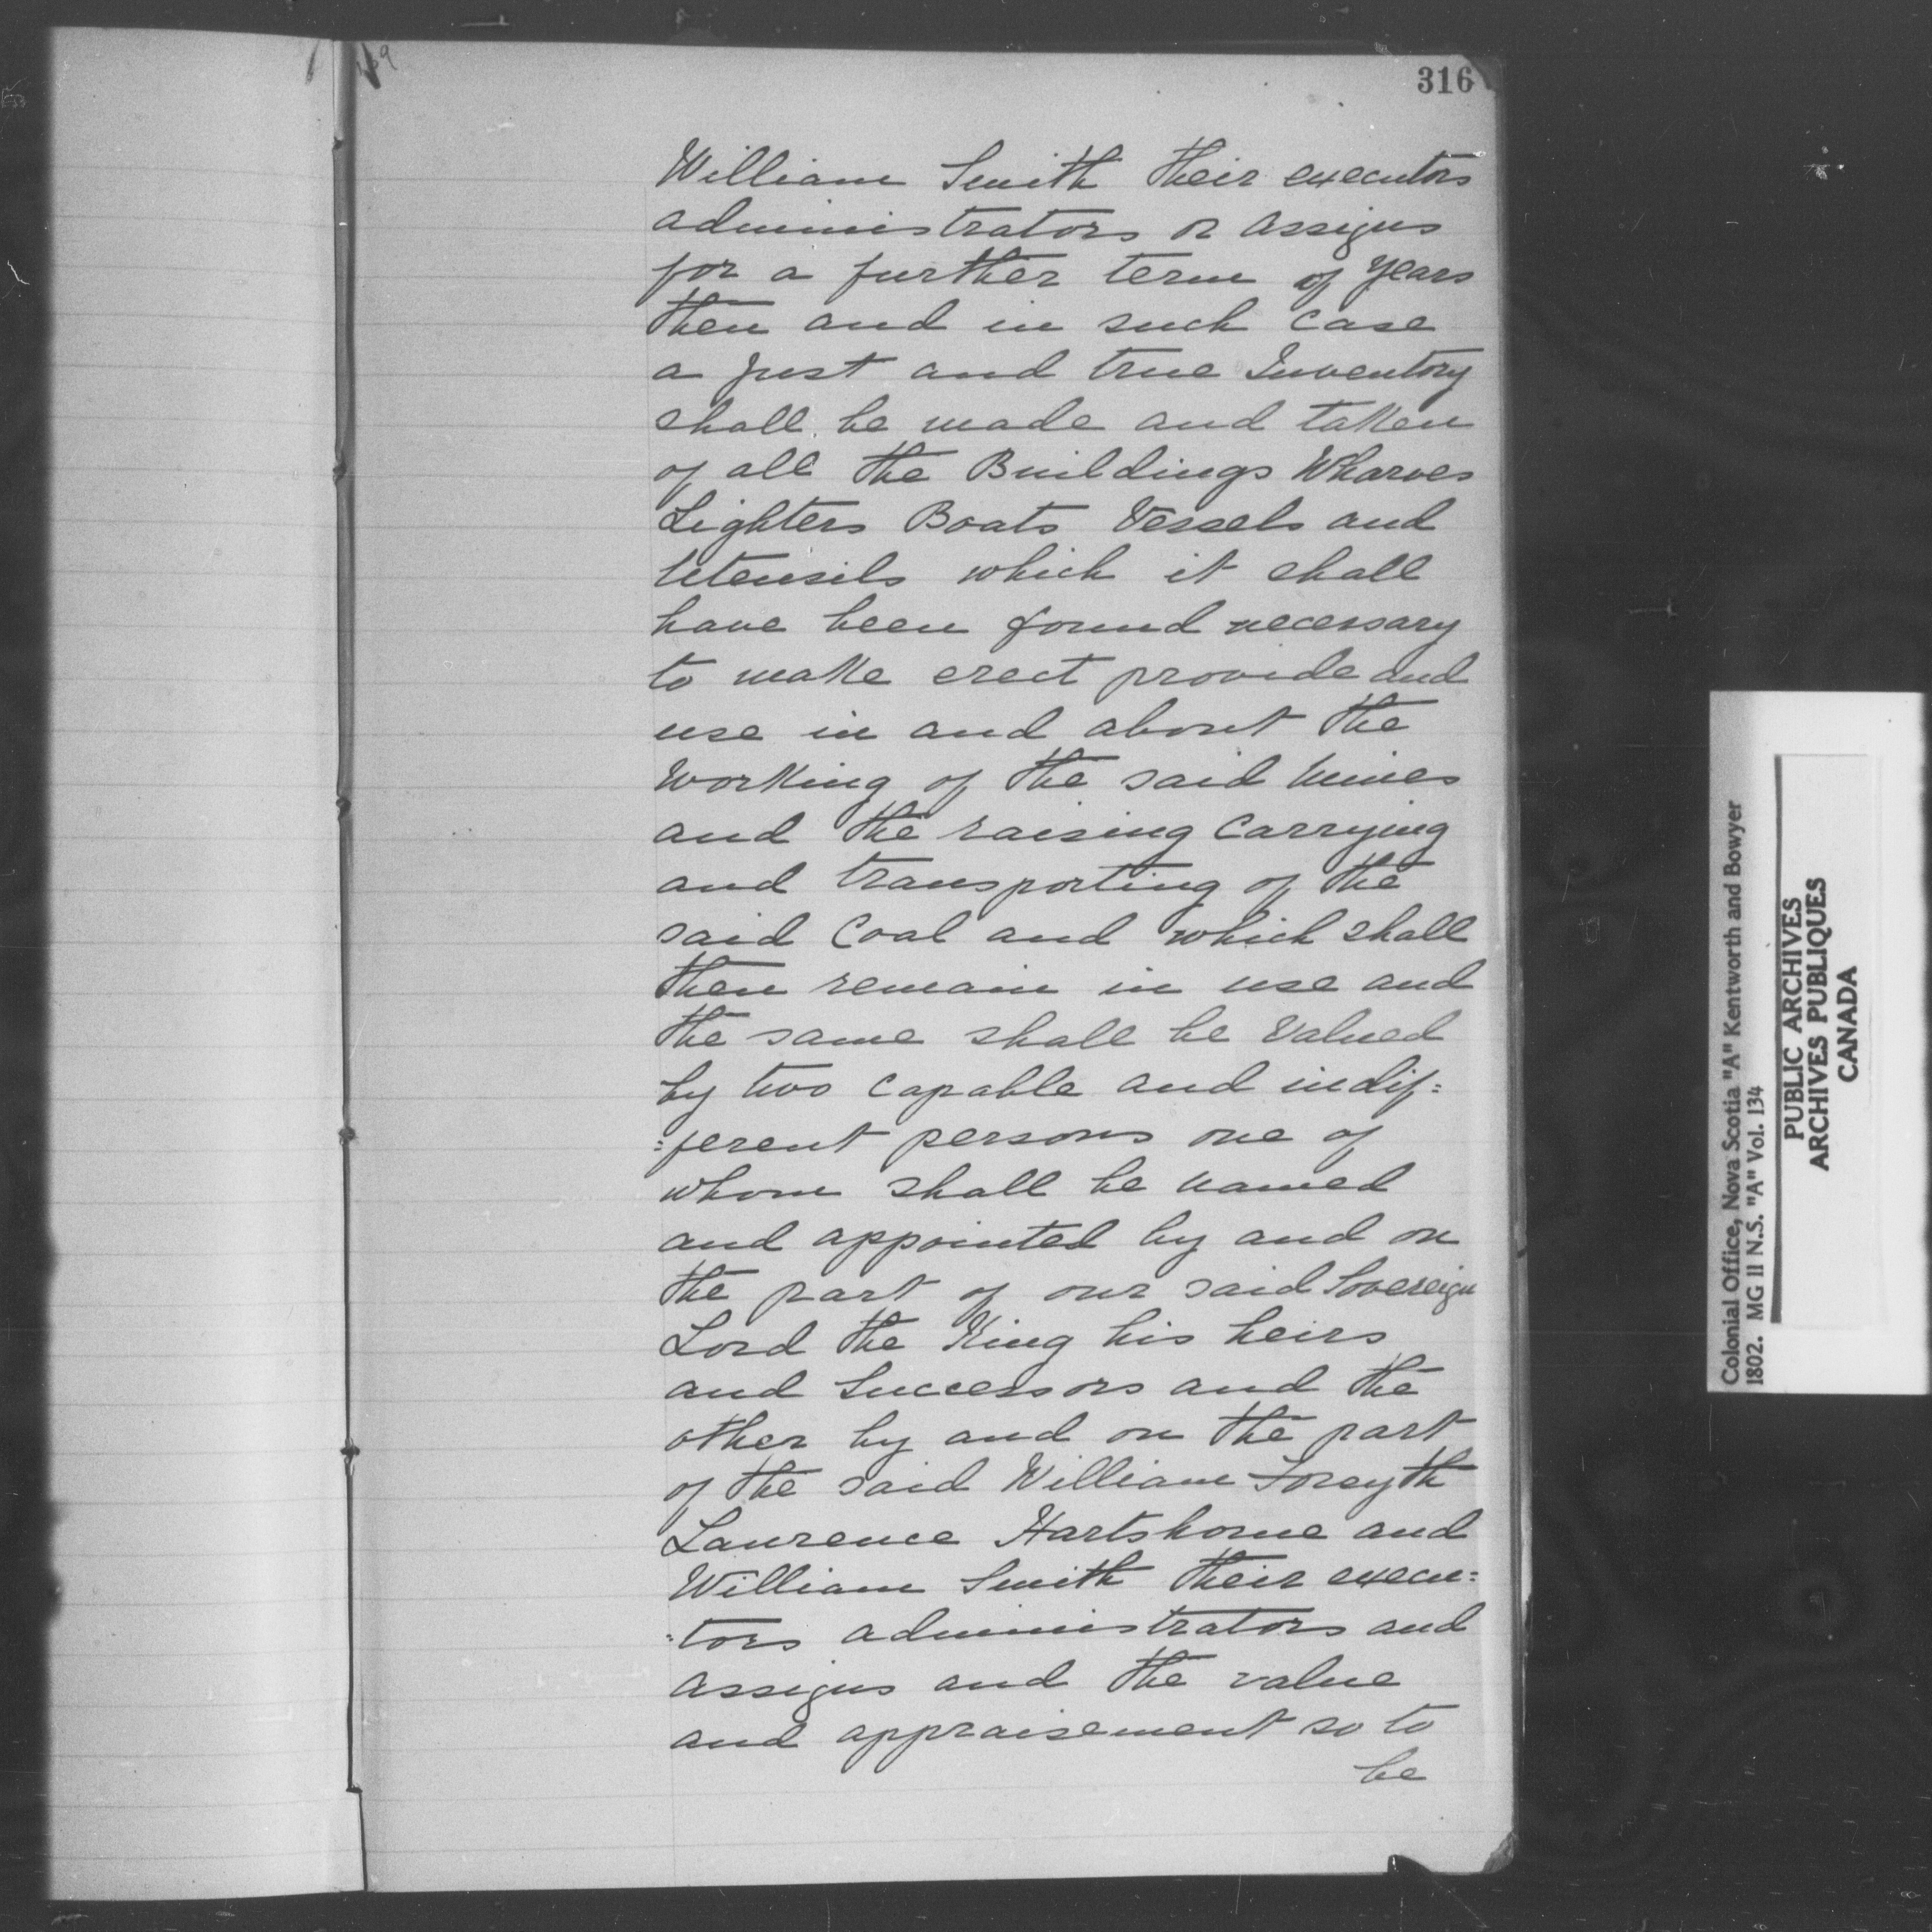 316
William Smith their executors
administrators or assigns
for a further term of years
then and in such case
a just and true Inventory
shall be made and taken
of all the Buildings Wharves
Lighters Boats Vessels and
Utensils which it shall
have been found necessary
to make erect provide and
use in and about the
working of the said mines
and the raising carrying
and transporting of the
said Coal and which shall
then remain in use and
the same shall be valued
by two capable and indif=
=ferent persons one of
whom shall be named
and appointed by and on
the part of our said Sovereign
Lord the King his heirs
and Successors and the
other by and on the part
of the said William Forsyth
Laurence Hartshorne and
William Smith their execu=
=tors administrators and
assigns and the value
and appraisement so to
be
Colonial Office, Nova Scotia "A" Kentworth and Bowyer
1802. MG 11 N.S. "A" Vol. 134
PUBLIC ARCHIVES
ARCHIVES PUBLIQUES
CANADA